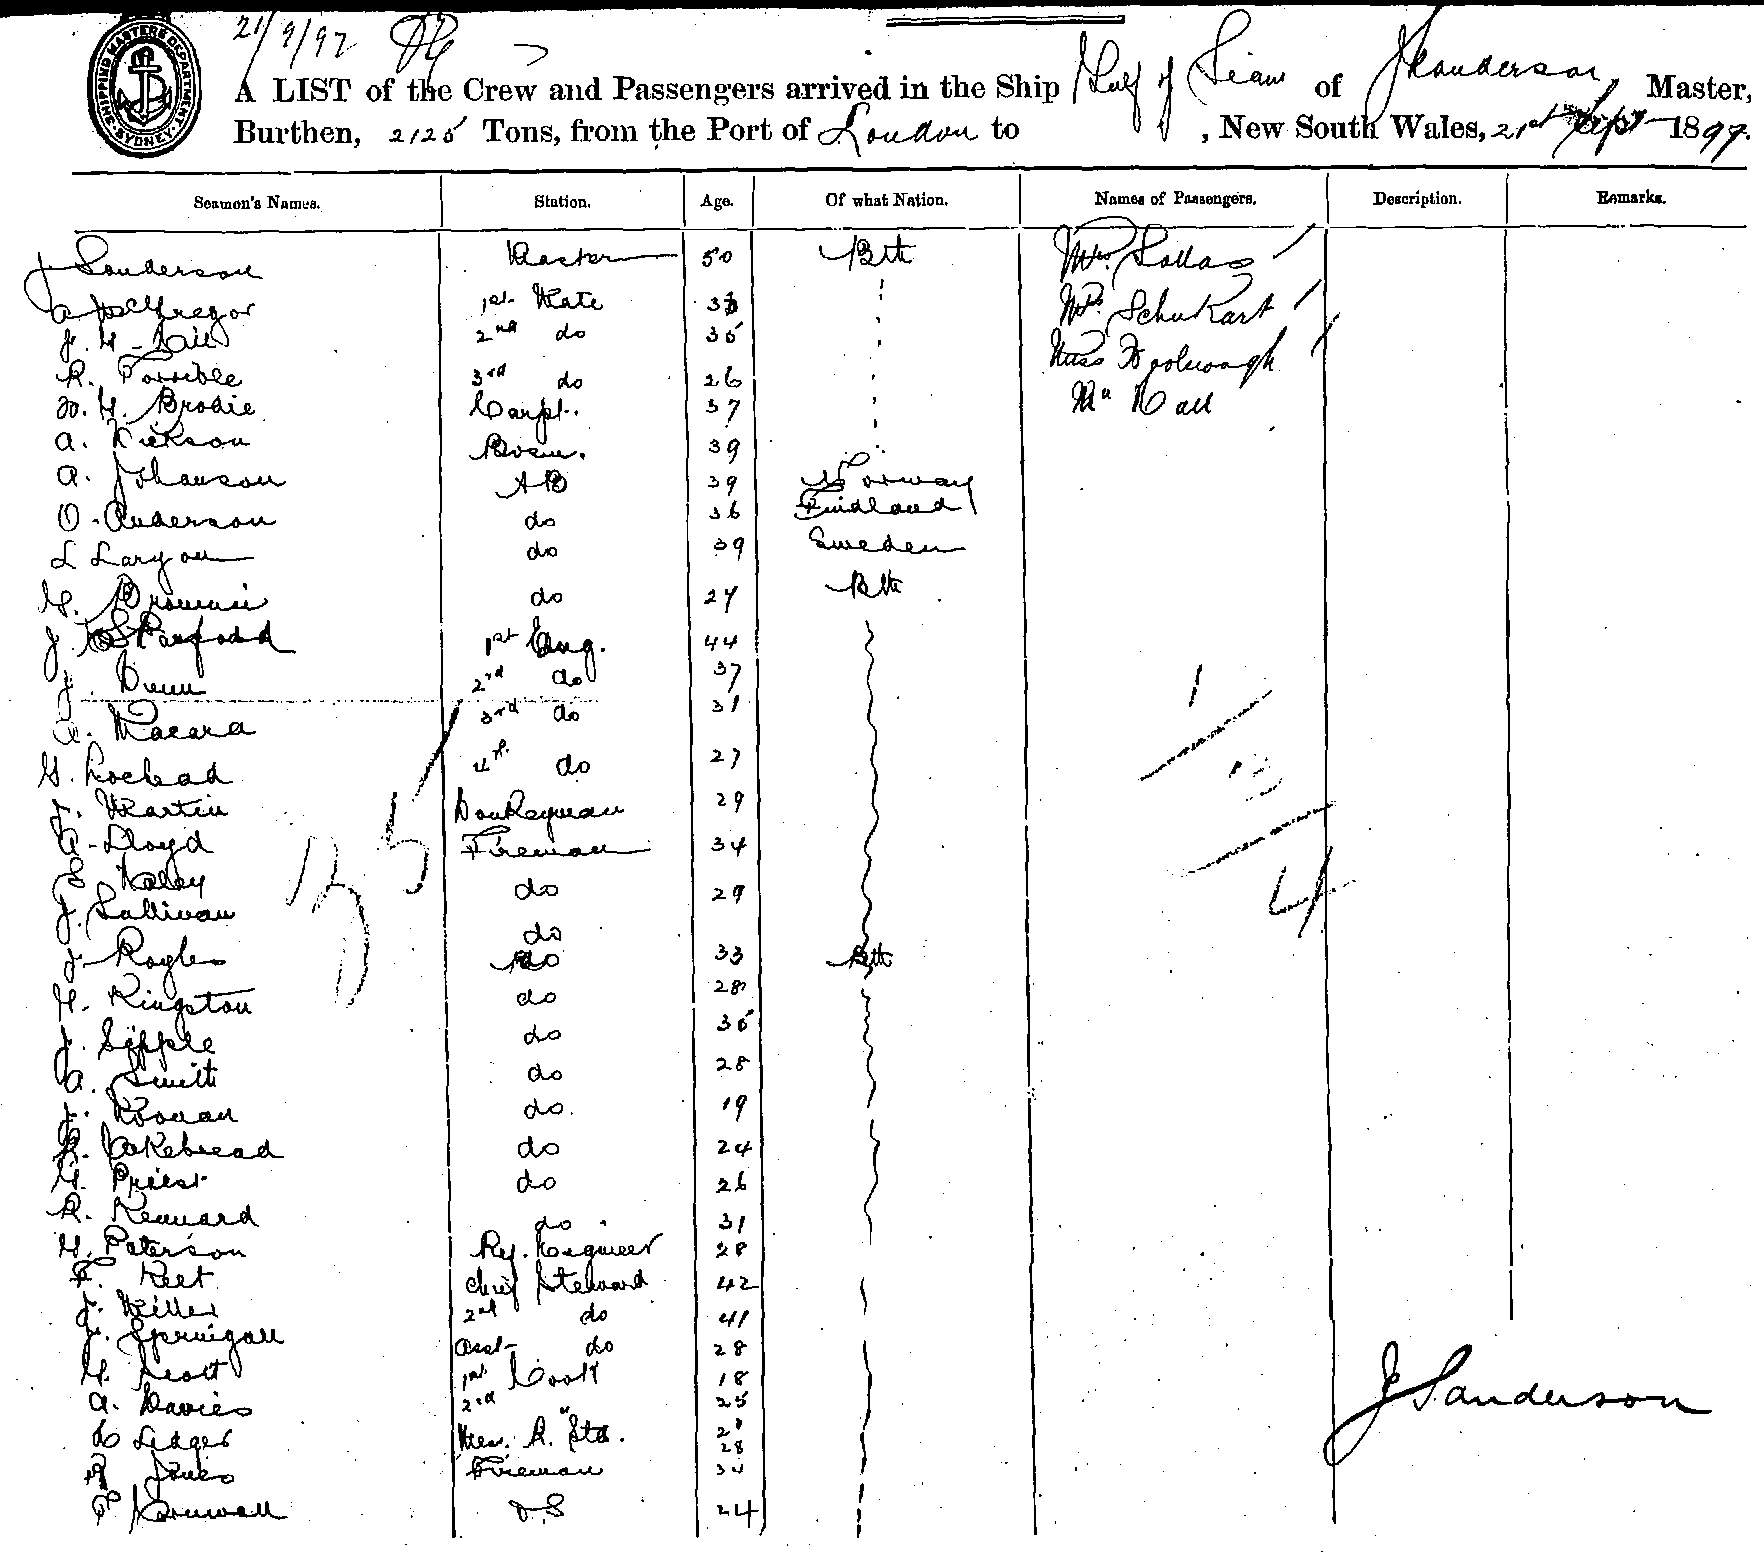 SHIPPING MASTERS DEPARTMENT SYDNEY
21/9/97
A LIST of the Crew and Passengers arrived in the Ship Gulf of Siam of J Sanderson Master,
Burthen, 2125 Tons, from the Port of London to , New South Wales, 21st Sept 1897.
Seamen's Names. Station. Age. Of what Nation. Names of Passengers. Description. Remarks.
J Sanderson Master 50 Bth Mrs. Sollas
A McGregor 1st Mate Mrs. Schukart
J. H. 2nd do 35 Miss
R. 3rd do 26 Mr
W. H. Brodie Carpt. 37
A. Bosn. 39
A. Johanson AB 39 Norway
O. Anderson do 36 Findland
L do 39 Sweden
H. Brownie do 27 Bth
J. 1st Eng. 44
J. Dunn 2nd do 37
A. Macara 3rd do 31
G. Loclead 4th do 27
J. Martin Donkeyman 29
A. Lloyd Fireman 34
do 29
J. Sullivan do
J. do 33 Bth
H. Kingston do 28
J. Sipple do 35
A. Smith do 28
J. do 19
R. do 24
H. Priest do 26
R. Kennard do 31
H. Peterson Ref. Engineer 28
F. Chief Steward 42
J. Miller 2nd do 41
J. Springall Asst do 28
H. Scott 1st Cook 18
A. Davies 2nd " 25
Ledger Mess. R. Std. 28
Jones Fireman 34
F Cornwall O.S 24
35
1
3
4
J Sanderson